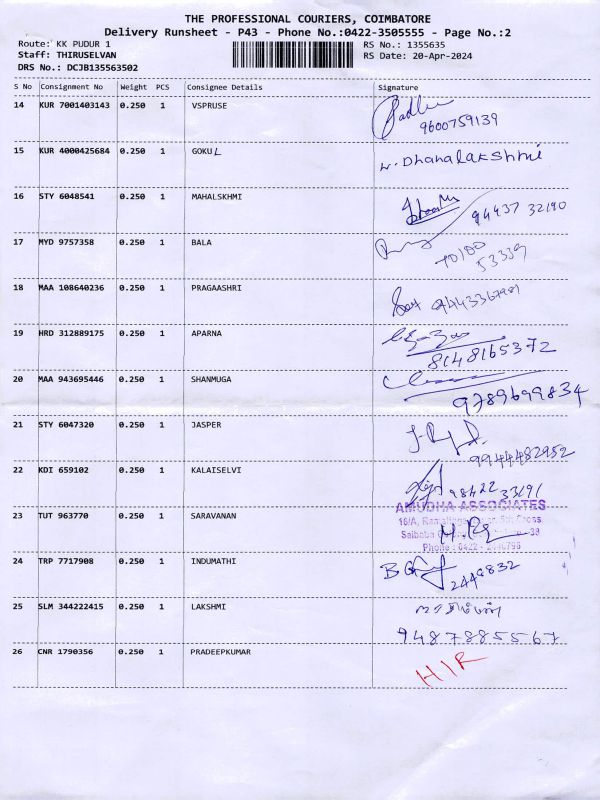 THE PROFESSIONAL COURIERS, COIMBATORE
Delivery Runsheet - P43 - Phone No.:0422-3505555 - Page No.:2
Route: KK PUDUR 1
RS No.: 1355635
Staff: THIRUSELVAN
RS Date: 20-Apr-2024
DRS No.: DCJB135563502
S No Consignment No Weight PCS Consignee Details Signature
14 KUR 7001403143 0.250 1 VSPRUSE
9600759139
15 KUR 4000425684 0.250 1 GOKUL
W. Dhanalakshmi
16 STY 6048541 0.250 1 MAHALSKHMI
94437 32190
17 MYD 9757358 0.250 1 BALA
70100
53339
18 MAA 108640236 0.250 1 PRAGAASHRI
9443367981
19 HRD 312889175 0.250 1 APARNA
8148165372
20 MAA 943695446 0.250 1 SHANMUGA
9789699834
21 STY 6047320 0.250 1 JASPER
9944482952
22 KDI 659102 0.250 1 KALAISELVI
98422 33191
AMUDHA ASSOCIATES
23 TUT 963770 0.250 1 SARAVANAN
16/A, Cross
Saibaba - 38
Phone : 0422 -
24 TRP 7717908 0.250 1 INDUMATHI
2449832
25 SLM 344222415 0.250 1 LAKSHMI
9487885567
26 CNR 1790356 0.250 1 PRADEEPKUMAR
HIR